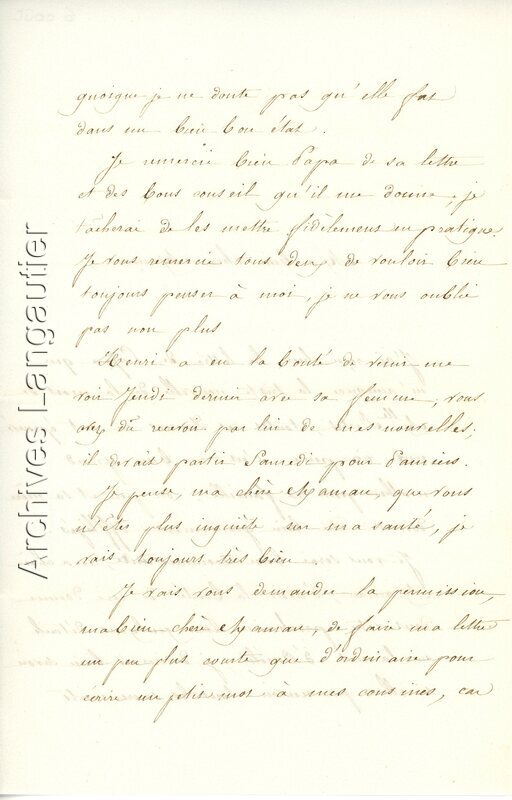 quoique je ne doute pas qu'elle fut
dans un bien bon état.
Je remercie bien Papa de sa lettre
et des bons conseil qu'il me donne, je
tâcherai de les mettre fidèlement en pratique.
Je vous remercie tous deux de vouloir bien
toujours penser à moi, je ne vous oublie
pas non plus
Henri a eu la bonté de venir me
voir Jeudi dernier avec sa femme, vous
avez dû recevoir par lui de mes nouvelles,
il devait partir Samedi pour Pamiers.
Je pense, ma chère Maman, que vous
n'êtes plus inquiète sur ma santé, je
vais toujours très bien.
Je vais vous demander la permission,
ma bien chère Maman, de faire ma lettre
un peu plus courte que d'ordinaire pour
écrire un petit mot à mes cousines, car
Archives Langautier